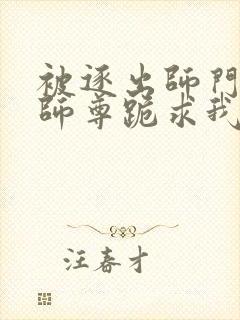 被逐出師門
師尊跪求我
汪春才